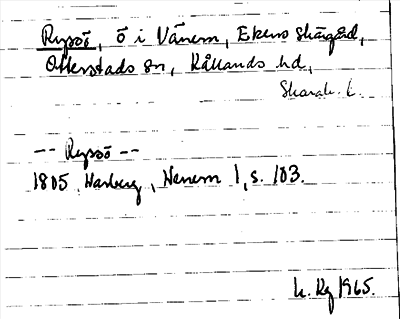 Rypsö, ö i Vänern, Ekens skärgård,
Otterstads sn, Kållands hd,
Skarab. l.
-- Rypsö --
1805, Warberg, Wenern 1, s. 103.
h. Kg 1965.